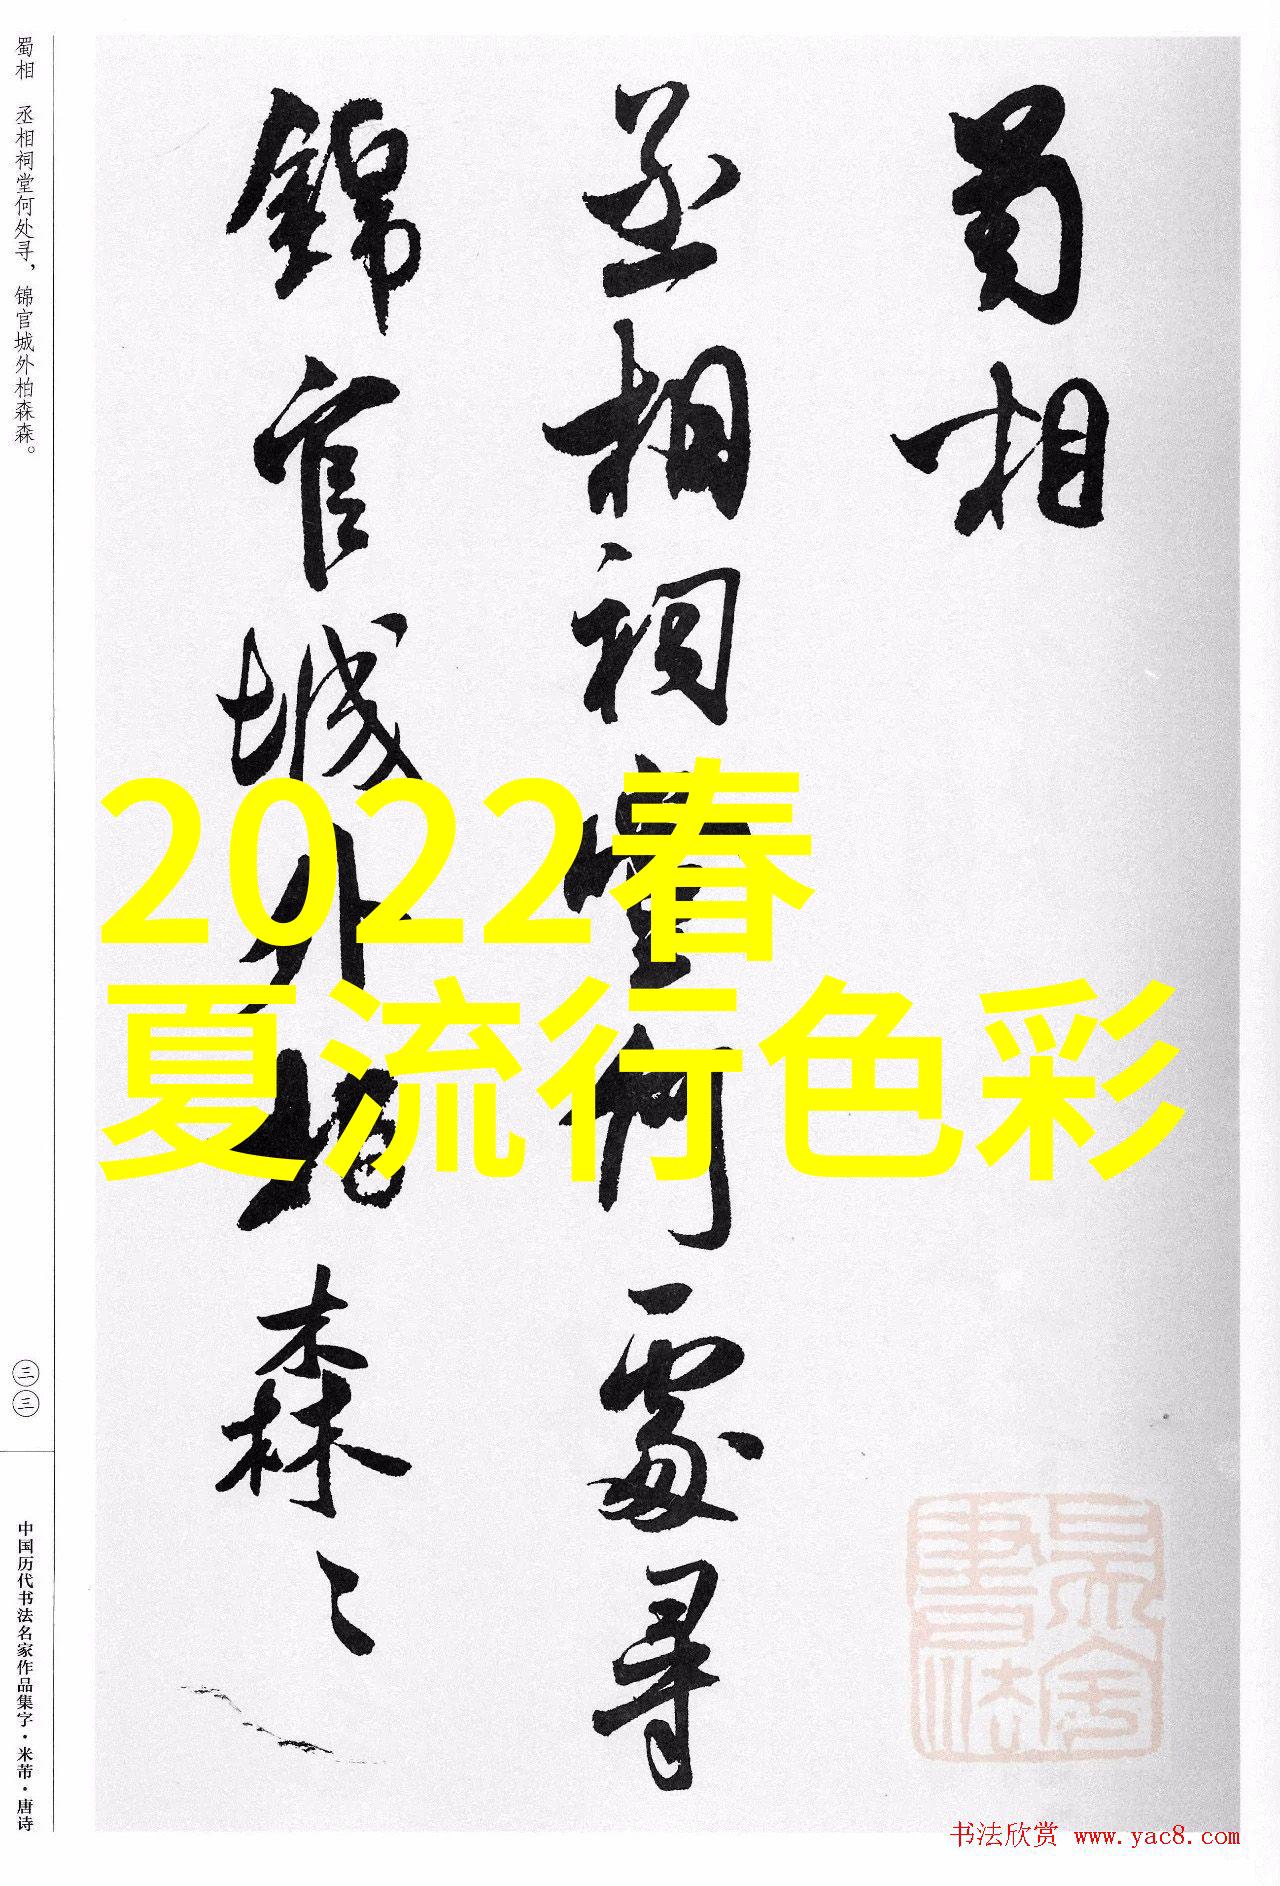 蜀相
丞相祠堂何處尋
錦官城外柏森〻
2022春
夏流行色彩
蜀相 丞相祠堂何处寻，锦官城外柏森森。
三三
中国历代书法名家作品集字·米芾·唐诗
书法欣赏 www.yac8.com